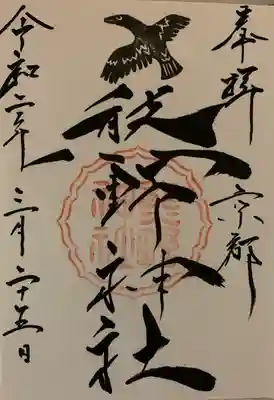 奉拝 京都
熊野神社
令和二年 三月二十五日